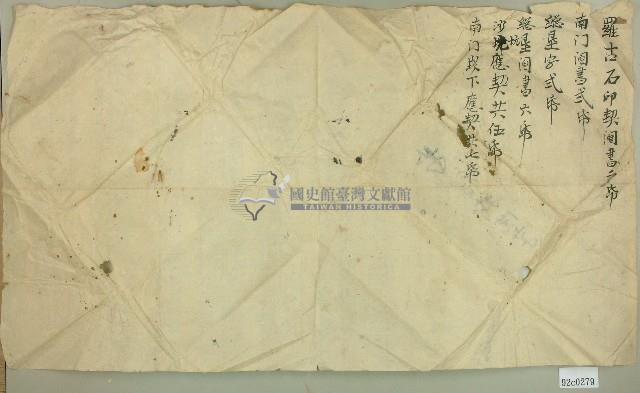 羅古石印契鬮書六帋
南门鬮書弍帋
總垦字弍帋
總垦鬮書六帋
沙坑應契共伍帋
南门崁下應契共七帋
國史館臺灣文獻館
TAIWAN HISTORICA
92c0279